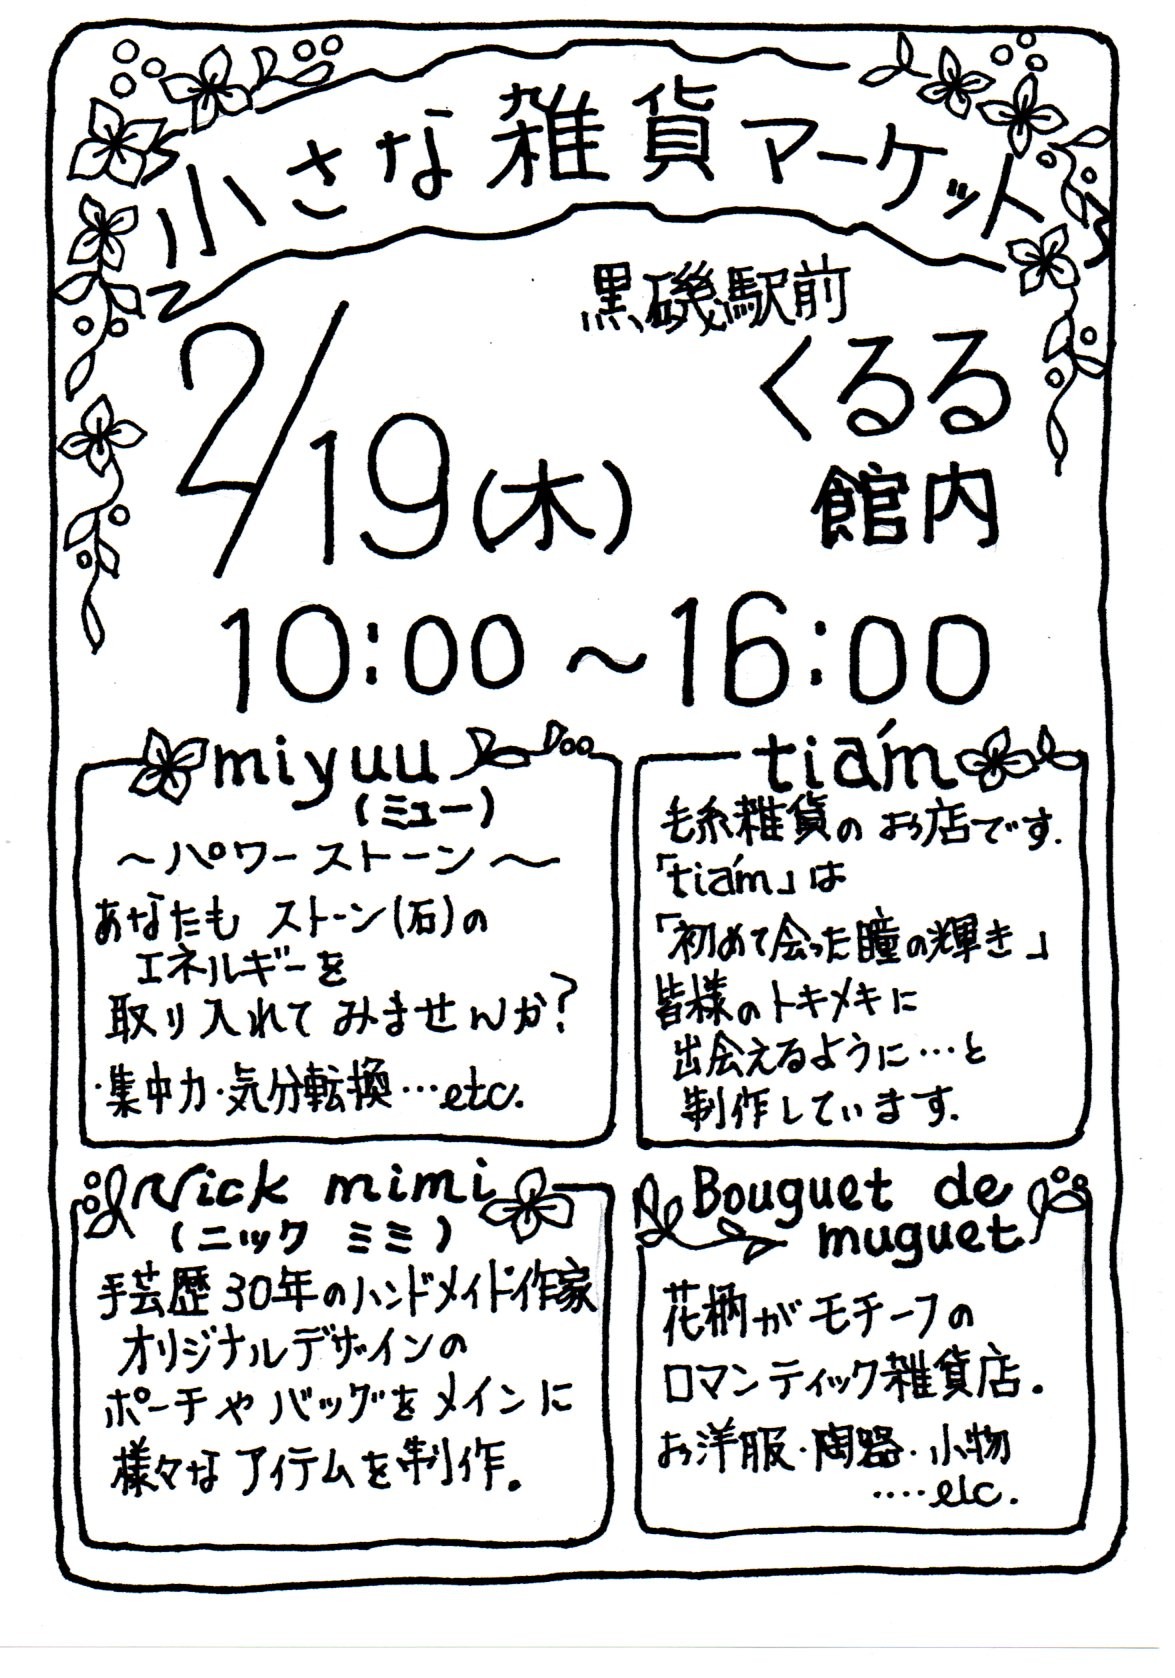 小さな雑貨マーケット
黒磯駅前
くるる
館内
2/19(木)
10:00～16:00
miyuu
(ミュー)
～パワーストーン～
あなたも ストーン(石)の
エネルギーを
取り入れて みませんか?
・集中力・気分転換…etc.
tiám
毛糸雑貨の お店です.
「tiám」は
「初めて会った瞳の輝き」
皆様のトキメキに
出会えるように…と
制作しています.
Nick mimi
(ニック ミミ)
手芸歴30年のハンドメイド作家
オリジナルデザインの
ポーチや バッグをメインに
様々な アイテムを制作。
Bouguet de
muguet
花柄が モチーフの
ロマンティック雑貨店.
お洋服・陶器・小物
....etc.